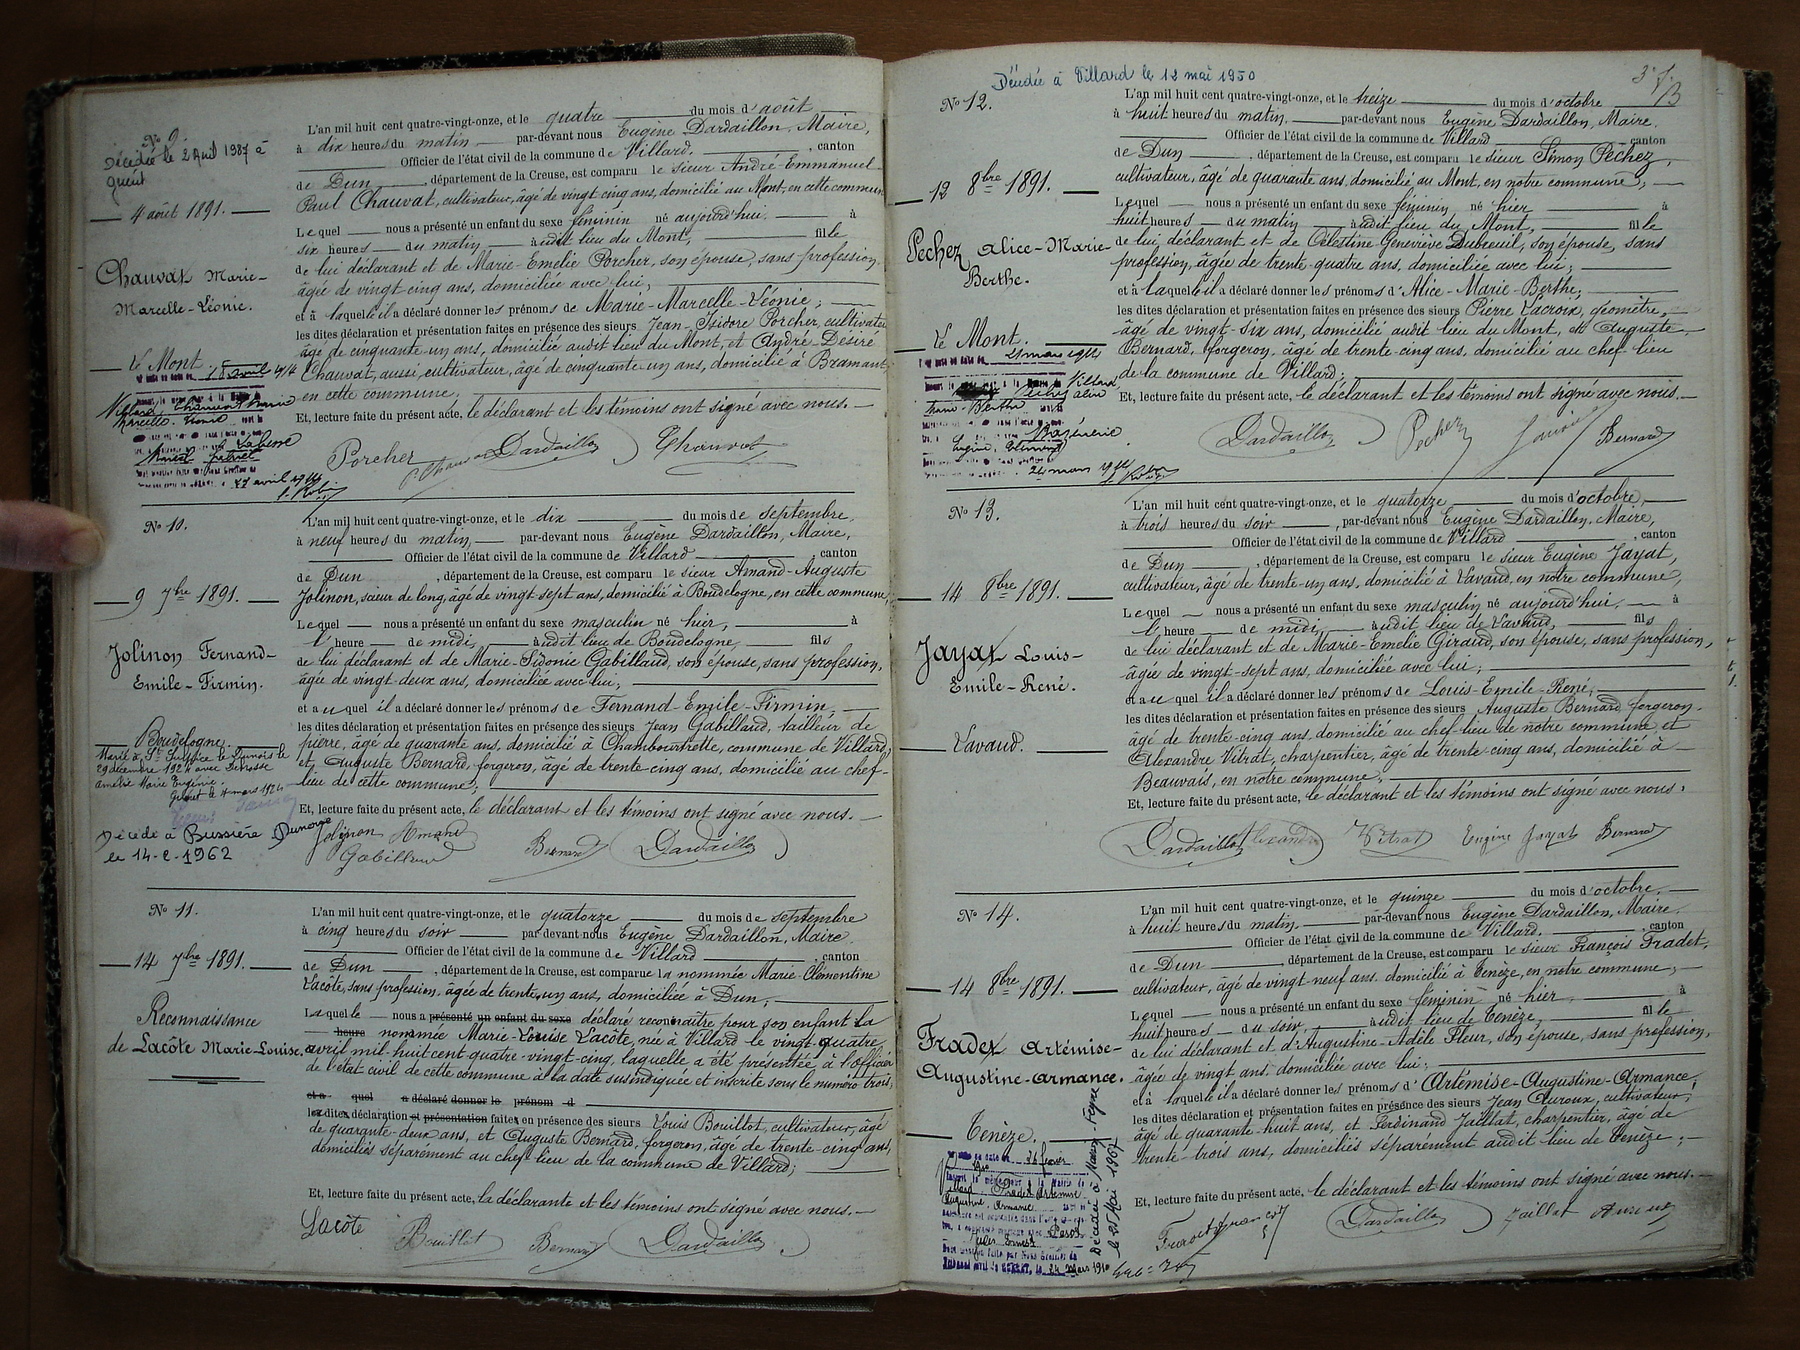 Nº 9
Décédée le 2 Avril 1987 à
Guéret
4 août 1891.
Chauvat Marie-
Marcelle-Léonie.
Le Mont
L'an mil huit cent quatre-vingt-onze, et le quatre du mois d'août
à dix heures du matin par-devant nous Eugène Dardaillon, Maire,
Officier de l'état civil de la commune de Villard, canton
de Dun, département de la Creuse, est comparu le sieur André-Emmanuel
Paul Chauvat, cultivateur, âgé de vingt cinq ans, domicilié au Mont, en cette commune
Lequel nous a présenté un enfant du sexe féminin né aujourd'hui, à
six heures du matin audit lieu du Mont, fille
de lui déclarant et de Marie-Emelie Porcher, son épouse, sans profession,
âgée de vingt cinq ans, domiciliée avec lui;
et à laquelle il a déclaré donner les prénoms de Marie-Marcelle-Léonie;
les dites déclaration et présentation faites en présence des sieurs Jean-Isidore Porcher, cultivateur
âgé de cinquante-un ans, domicilié audit lieu du Mont, et André-Désiré
Chauvat, aussi cultivateur, âgé de cinquante-un ans, domicilié à Bramant
en cette commune;
Et, lecture faite du présent acte, le déclarant et les témoins ont signé avec nous.
Porcher P. Chauvat Dardaillon Chauvat
Nº 10.
9 7bre 1891.
Jolinon Fernand-
Emile-Firmin.
Boudelogne.
Marié à St Sulpice le Dunois le
29 décembre 1924 avec
Amélie Marie Eugénie.
Décédé à Bussière Dunoise
le 14-2-1962
L'an mil huit cent quatre-vingt-onze, et le dix du mois de septembre,
à neuf heures du matin, par-devant nous Eugène Dardaillon, Maire,
Officier de l'état civil de la commune de Villard, canton
de Dun, département de la Creuse, est comparu le sieur Amand-Auguste
Jolinon, scieur de long, âgé de vingt sept ans, domicilié à Boudelogne, en cette commune
Lequel nous a présenté un enfant du sexe masculin né hier, à
l'heure de midi, audit lieu de Boudelogne, fils
de lui déclarant et de Marie-Sidonie Gabillaud, son épouse, sans profession,
âgée de vingt-deux ans, domiciliée avec lui;
et auquel il a déclaré donner les prénoms de Fernand-Emile-Firmin;
les dites déclaration et présentation faites en présence des sieurs Jean Gabillaud, tailleur de
pierre, âgé de quarante ans, domicilié à Chambourtrette, commune de Villard,
et Auguste Bernard, forgeron, âgé de trente cinq ans, domicilié au chef-
lieu de cette commune;
Et, lecture faite du présent acte, le déclarant et les témoins ont signé avec nous.
Jolinon Amand
Gabillaud Bernard Dardaillon
Nº 11.
14 7bre 1891.
Reconnaissance
de Lacôte Marie-Louise.
L'an mil huit cent quatre-vingt-onze, et le quatorze du mois de septembre
à cinq heures du soir par devant nous Eugène Dardaillon, Maire
Officier de l'état civil de la commune de Villard canton
de Dun, département de la Creuse, est comparue la nommée Marie-Clémentine
Lacôte, sans profession, âgée de trente-un ans, domiciliée à Dun,
Laquelle nous a présenté un enfant du sexe déclaré reconnaître pour son enfant la
heure nommée Marie-Louise Lacôte, née à Villard le vingt-quatre
avril mil-huit cent quatre-vingt-cinq, laquelle a été présentée à l'officier
de l'état civil de cette commune à la date susindiquée et inscrite sous le numéro trois;
et a quel a déclaré donner le prénom d
la dite déclaration et présentation faites en présence des sieurs Louis Bouillot, cultivateur, âgé
de quarante-deux ans, et Auguste Bernard, forgeron, âgé de trente-cinq ans,
domiciliés séparément au chef lieu de la commune de Villard;
Et, lecture faite du présent acte, la déclarante et les témoins ont signé avec nous.
Lacôte Bouillot Bernard Dardaillon
Décédée à Villard le 12 mai 1950
Nº 12.
12 8bre 1891.
Pechez Alice-Marie-
Berthe.
Le Mont.
L'an mil huit cent quatre-vingt-onze, et le treize du mois d'octobre
à huit heures du matin, par-devant nous Eugène Dardaillon, Maire,
Officier de l'état civil de la commune de Villard canton
de Dun, département de la Creuse, est comparu le sieur Simon Pechez,
cultivateur, âgé de quarante ans, domicilié au Mont, en notre commune;
Lequel nous a présenté un enfant du sexe féminin né hier à
huit heures du matin audit lieu du Mont, fille
de lui déclarant et de Célestine Geneviève Dubreuil, son épouse, sans
profession, âgée de trente-quatre ans, domiciliée avec lui;
et à laquelle il a déclaré donner les prénoms d'Alice-Marie-Berthe;
les dites déclaration et présentation faites en présence des sieurs Pierre Lacroix, géomètre,
âgé de vingt-six ans, domicilié audit lieu du Mont, et Auguste
Bernard, forgeron, âgé de trente-cinq ans, domicilié au chef lieu
de la commune de Villard;
Et, lecture faite du présent acte, le déclarant et les témoins ont signé avec nous.
Dardaillon Pechez Lacroix Bernard
Nº 13.
14 8bre 1891.
Jayat Louis-
Emile-René.
Lavaud.
L'an mil huit cent quatre-vingt-onze, et le quatorze du mois d'octobre,
à trois heures du soir, par-devant nous Eugène Dardaillon, Maire,
Officier de l'état civil de la commune de Villard, canton
de Dun, département de la Creuse, est comparu le sieur Eugène Jayat,
cultivateur, âgé de trente-un ans, domicilié à Lavaud, en notre commune,
Lequel nous a présenté un enfant du sexe masculin né aujourd'hui, à
l'heure de midi, audit lieu de Lavaud, fils
de lui déclarant et de Marie-Emelie Giraud, son épouse, sans profession,
âgée de vingt-sept ans, domiciliée avec lui;
et auquel il a déclaré donner les prénoms de Louis-Emile-René;
les dites déclaration et présentation faites en présence des sieurs Auguste Bernard, forgeron,
âgé de trente-cinq ans, domicilié au chef-lieu de notre commune et
Alexandre Vitrat, charpentier, âgé de trente cinq ans, domicilié à
Beauvais, en notre commune;
Et, lecture faite du présent acte, le déclarant et les témoins ont signé avec nous.
Dardaillon Alexandre Vitrat Eugène Jayat Bernard
Nº 14.
14 8bre 1891.
Fradet Artémise-
Augustine-Armance.
Tenèze.
Décédée à
le 25 Mai 1967
L'an mil huit cent quatre-vingt-onze, et le quinze du mois d'octobre,
à huit heures du matin, par-devant nous Eugène Dardaillon, Maire,
Officier de l'état civil de la commune de Villard, canton
de Dun, département de la Creuse, est comparu le sieur François Fradet,
cultivateur, âgé de vingt-neuf ans, domicilié à Tenèze, en notre commune;
Lequel nous a présenté un enfant du sexe féminin né hier, à
huit heures du soir, audit lieu de Tenèze, fille
de lui déclarant et d'Augustine-Adèle Fleur, son épouse, sans profession,
âgée de vingt ans, domiciliée avec lui;
et à laquelle il a déclaré donner les prénoms d'Artémise-Augustine-Armance;
les dites déclaration et présentation faites en présence des sieurs Jean Auroux, cultivateur,
âgé de quarante-huit ans, et Ferdinand Jaillat, charpentier, âgé de
trente-trois ans, domiciliés séparément audit lieu de Tenèze;
Et, lecture faite du présent acte, le déclarant et les témoins ont signé avec nous.
Dardaillon Jaillat Auroux